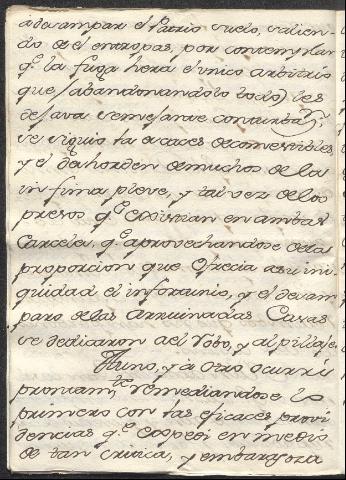 adesampar el Patrio suelo, salien-
do de el en tropas, por contemplar
q.e la fuga hera el unico arbitrio
que (abandonandolo todo) les
dejava semejante contraste.
se siguió la escases de comestibles,
y el deshorden de muchos de la
infima pleve, y tal vez de los
presos q.e existian en ambas
Carcels, q.e aprovechandose de la
proporcion que ofrecia a su ini-
quidad el infortunio, y el desam-
paro de las arruinadas Casas
se dedicaron ael robo, y al pillaje.
Auno, y à otro ocurrí
prontam.te remediandose lo
primero con las eficaces provi
dencias q.e expedi en medio
de tan critica, y embarazosa